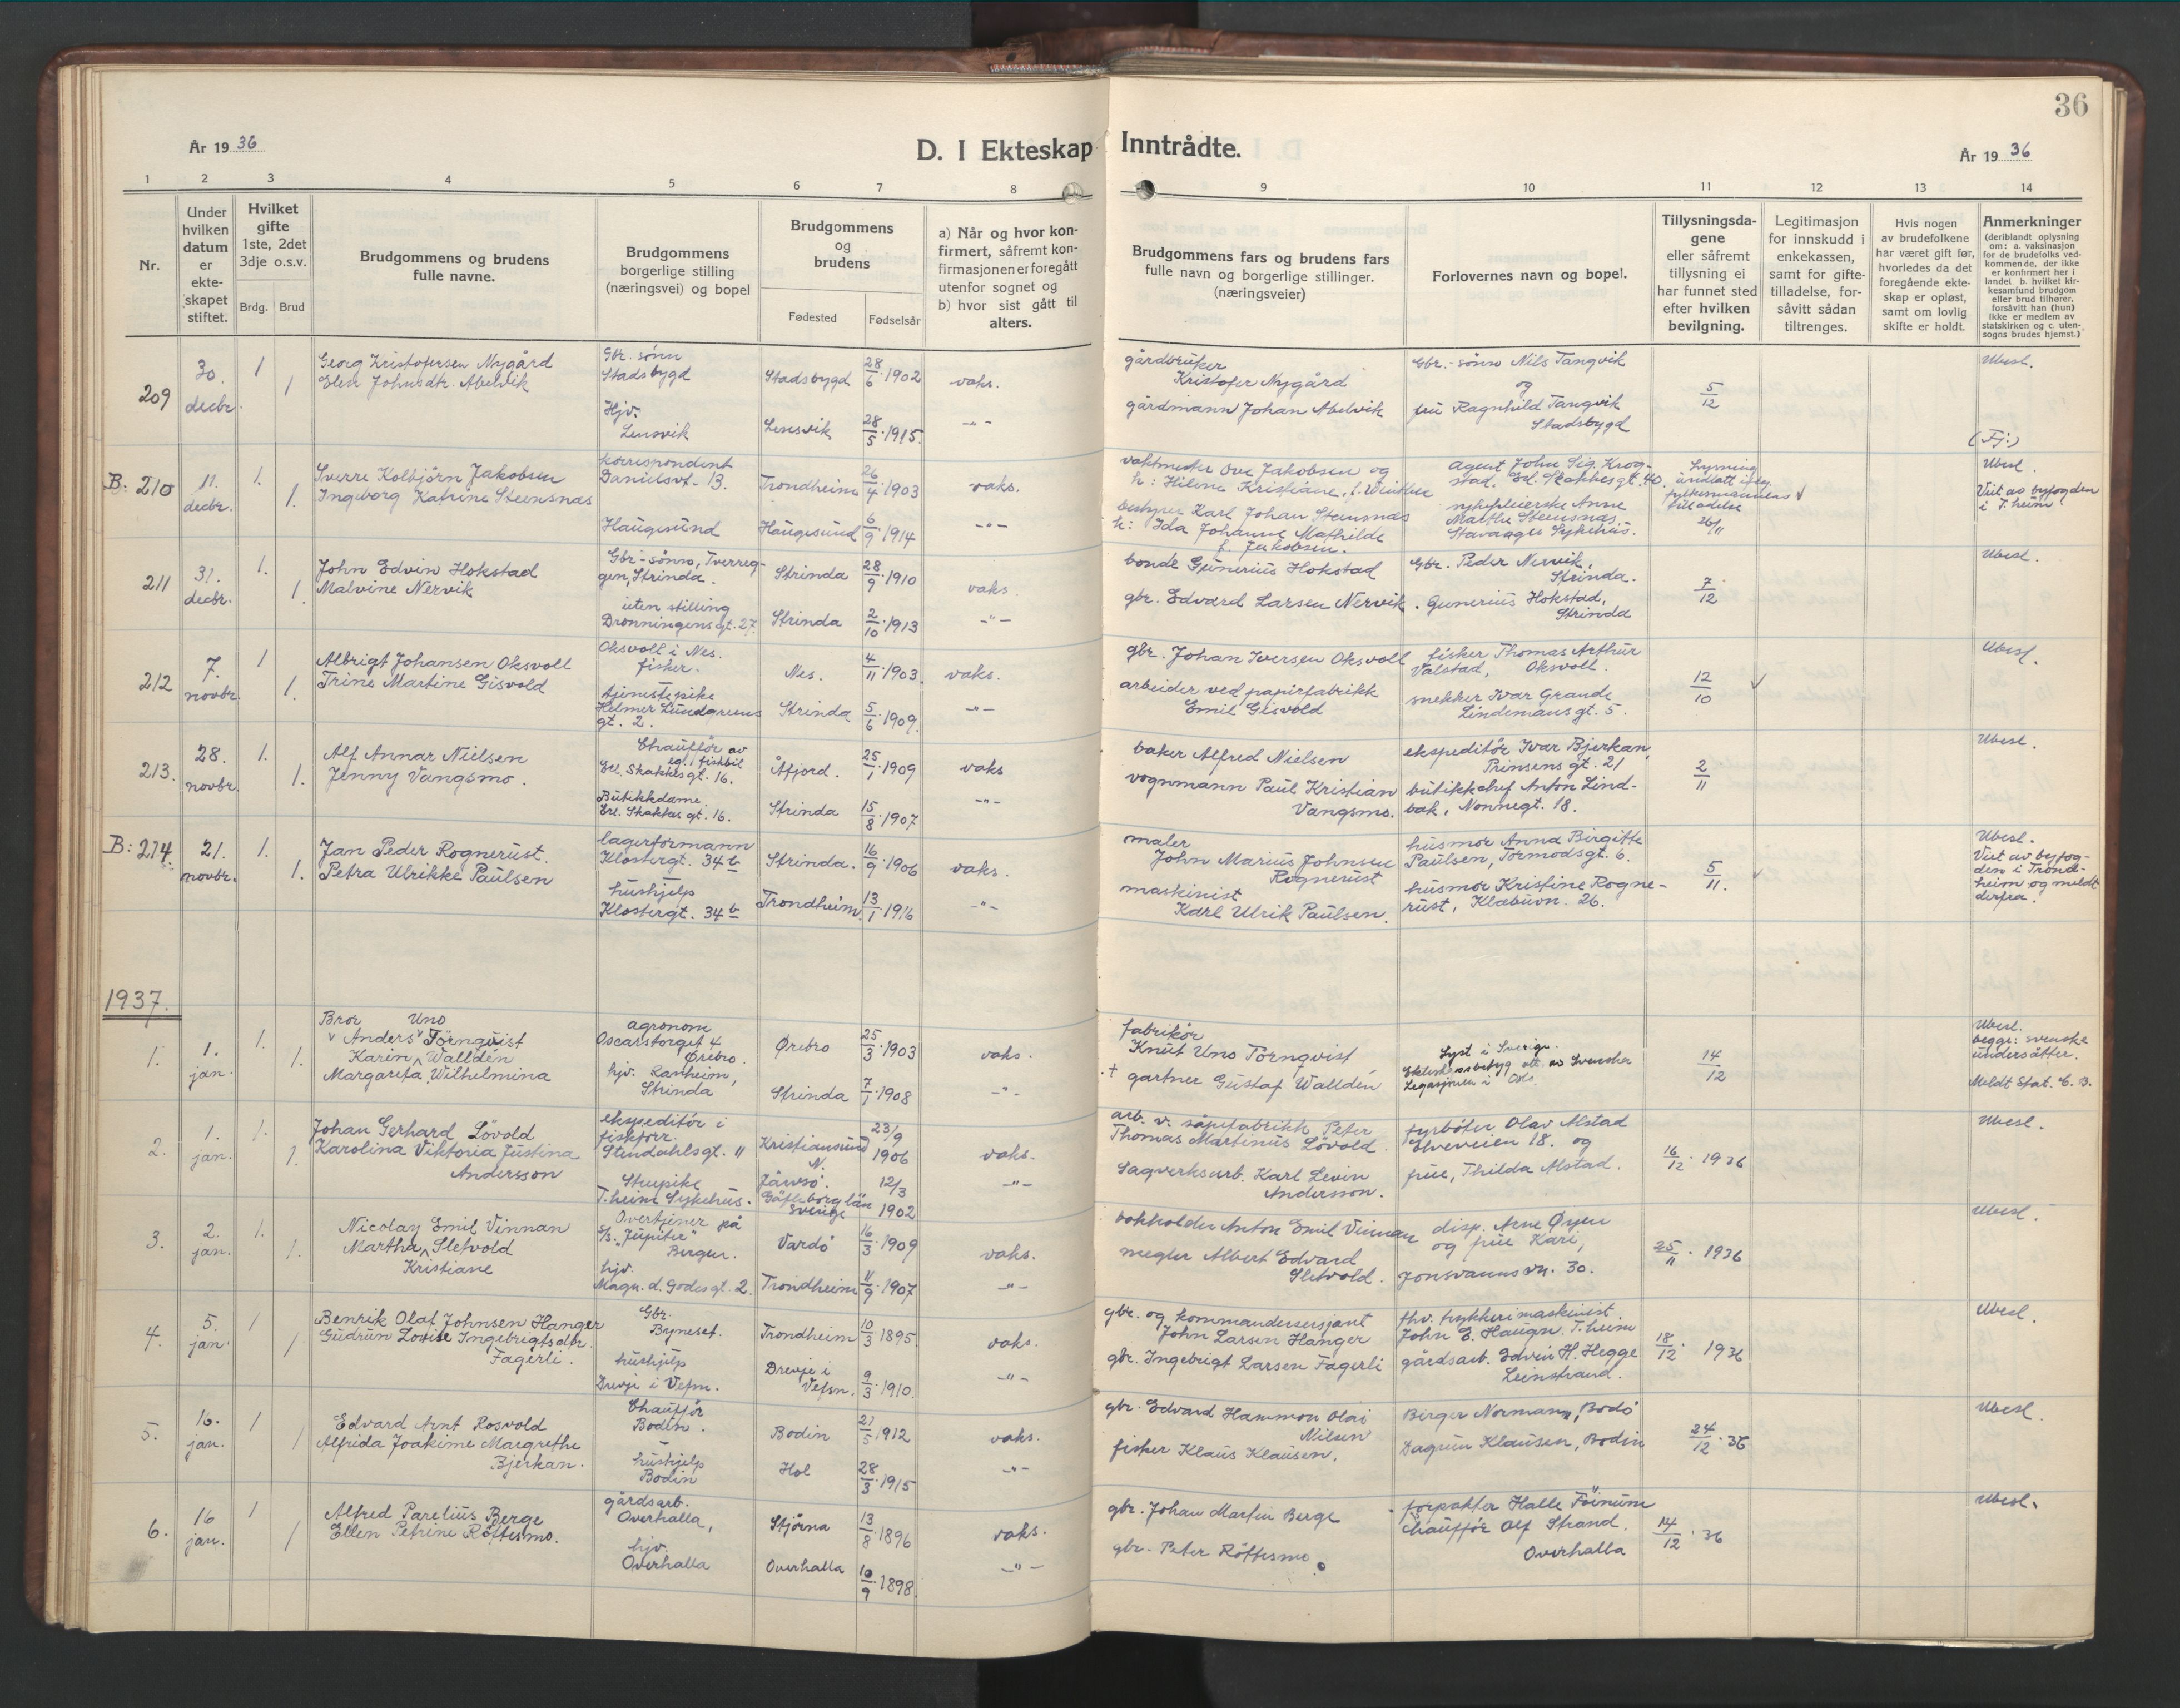 36
År 19 36
D. I Ekteskap Inntrådte.
År 19 36
1 2 3 4 5 6 7 8 9 10 11 12 13 14
Nr.
Under hvilken datum er ekte-skapet stiftet.
Hvilket gifte 1ste, 2det 3dje o.s.v.
Brdg. Brud
Brudgommens og brudens fulle navne.
Brudgommens borgerlige stilling (næringsvei) og bopel
Brudgommens og brudens
Fødested
Fødselsår
a) Når og hvor kon-firmert, såfremt kon-firmasjonen er foregått utenfor sognet og b) hvor sist gått til alters.
Brudgommens fars og brudens fars fulle navn og borgerlige stillinger. (næringsveier)
Forlovernes navn og bopel.
Tillysningsda-gene eller såfremt tillysning ei har funnet sted efter hvilken bevilgning.
Legitimasjon for innskudd i enkekassen, samt for gifte-tilladelse, for-såvitt sådan tiltrenges.
Hvis nogen av brudefolkene har været gift før, hvorledes da det foregående ekte-skap er opløst, samt om lovlig skifte er holdt.
Anmerkninger (deriblandt oplysning om: a. vaksinasjon for de brudefolks ved-kommende, der ikke er konfirmert her i landet. b. hvilket kir-kesamfund brudgom eller brud tilhører, forsåvitt han (hun) ikke er medlem av statskirken og c. uten-sogns brudes hjemst.)
209
30. decbr.
1
1
Georg Kristofersen Nygård
Elen Johnsdtr. Abelvik
Gbr. sønn
Stadsbygd
Hjv.
Lensvik
Stadsbygd 28/6 1902 vaks.
Lensvik 28/5 1915. -"-
gårdbruker
Kristofer Nygård
gårdmann Johan Abelvik
Gbr.-sønn Nils Tangvik
og
frü Ragnhild Tangvik
Stadsbygd
5/12
Ubesl.
(Fj.)
B: 210
11. decbr.
1.
1.
Sverre Kolbjörn Jakobsen
Ingeborg Katrine Steensnæs
korrespondent
Danielsvt. 13.
Haugesund
Trondheim 26/4 1903 vaks.
Haugesund 6/9 1914 -"-
vaktmester Ove Jakobsen og
h: Hilene Kristiane, f. Winther
bestyrer Karl Johan Steensnæs
h: Ida Johanne Mathilde
f. Jakobsen.
agent John Sig. Krog-
stad, Erl. Skakkesgt. 40.
sykepleierske Anne
Marthe Steensnæs
Stavanger Sykehus.
Lysning
undlatt ifølg.
fylkesmannens
tilladelse
26/11
Ubesl.
Viet av byfogden
i T.heim
211
31. decbr.
1.
1.
John Edvin Hokstad
Malvine Nervik
Gbr.-sønn, Tverreg-
gen, Strinda.
uten stilling
Dronningensgt. 27.
Strinda 28/9 1910 vaks.
Strinda 2/10 1913 -"-
bonde Gunerius Hokstad
gbr. Edvard Larsen Nervik.
Gbr. Peder Nervik,
Strinda.
Gunerius Hokstad,
Strinda
7/12
Ubesl.
212
7. novbr.
1
1.
Albrigt Johansen Oksvoll
Trine Martine Gisvold
Oksvoll i Nes.
fisker.
tjenestepike
Helmer Lundgreens
gt. 2.
Nes. 4/11 1903. vaks.
Strinda 5/6 1909. -"-
gbr. Johan Iversen Oksvoll
arbeider ved papirfabrikk
Emil Gisvold
fisker Thomas Arthur
Valstad, Oksvoll.
snekker Ivar Grande
Lindemansgt. 5.
12/10
Ubesl.
213.
28. novbr.
1.
1.
Alf Annar Nielsen
Jenny Vangsmo.
Chauffør av
eg. fiskbil
Erl. Skakkesgt. 16.
Butikkdame
Erl. Skakkes gt. 16.
Åfjord. 25/1 1909 vaks
Strinda 15/8 1907 -"-
baker Alfred Nielsen
vognmann Paul Kristian
Vangsmo.
ekspeditør Ivar Bjerkan,
Prinsens gt. 21
butikkchef Anton Lind-
bak, Nonnegt. 18.
2/11
Ubesl.
B: 214.
21. novbr.
1.
1.
Jan Peder Rognerust.
Petra Ulrikke Paulsen
lagerformann
Klostergt. 34 b
hushjelp
Klostergt. 34 b
Strinda. 16/9 1906 vaks.
Trondheim 13/1 1916 -"-
maler
John Marius Johnsen
Rognerust
maskinist
Karl Ulrik Paulsen.
husmor Anna Birgitte
Paulsen, Tormodsgt. 6.
husmor Kristine Rogne-
rust, Klæbuvn. 26.
5/11.
Ubesl.
Viet av byfog-
den i Trond-
heim og meldt
derfra.
1937.
1.
1. jan.
1.
1.
Bror Uno
Anders Törnqvist
Karin Walldén
Margareta Wilhelmina
agronom
Oscarstorget 4
Ørebro.
hjv. Ranheim,
Strinda
Ørebro 25/3 1903 vaks.
Strinda 7/1 1908 -"-
fabrikör
Knut Uno Törnqvist
+ gartner Gustaf Walldén
Lyst i Sverige.
Legasjonen i Oslo
14/12
Ubesl.
begge: svenske
undersåtter.
Meldt Stat. C. B.
2.
1. jan.
1.
1.
Johan Gerhard Lövold
Karolina Viktoria Justina
Andersson
ekspeditör i
fiskforr.
Stendahlsgt. 11
Stuepike
T.heim Sykehus.
Kristiansund N. 23/9 1906 vaks.
Järvsö. Gäfleborg län Sverige 12/3 1902 -"-
arb. v. såpefabrikk Peter
Thomas Martinus Lövold.
Sagverksarb. Karl Levin
Andersson.
fyrböter Olav Alstad
Elveveien 18. og
frue, Thilda Alstad.
16/12 1936
Ubesl.
3.
2. jan.
1.
1.
Nicolay Emil Vinnan
Martha Sletvold
Kristiane
Overtjener på
s/s. "Jupiter"
Bergen.
hjv.
Magn. d. Godesgt. 2.
Vardö 16/3 1909 vaks.
Trondheim 11/9 1907 -"-
bokholder Anton Emil Vinnan
megler Albert Edvard
Sletvold.
disp. Arne Øyen
og frue Kari,
Jonsvanns vn. 30.
25/11. 1936
Ubesl.
4.
5. jan.
1
1
Benrik Olaf Johnsen Hanger
Gudrun Lovise Ingebrigtsdtr.
Fagerli.
Gbr.
Byneset.
hushjelp
Drevje i Vefsn.
Trondheim 10/3 1895 vaks.
Drevje i Vefsn. 9/3 1910. -"-
gbr. og kommandersersjant
John Larsen Hanger
gbr. Ingebrigt Larsen Fagerli
fhv. trykkerimaskinist
John E. Haugn. T.heim
gårdsarb. Edvin H. Hegge
Leinstrand.
18/12. 1936
Ubesl.
5.
16. jan.
1
1
Edvard Arnt Rosvold
Alfrida Joakime Margrethe
Bjerkan.
Chauffør
Bodin.
hushjelp
Bodin
Bodin 21/5 1912 vaks.
Hol 28/3 1915 -"-
gbr. Edvard Hammon Olai
Nilsen
fisker Klaus Klausen.
Birger Normann, Bodö
Dagrun Klausen, Bodin
24/12. 36
Ubesl.
6.
16 jan.
1
1
Alfred Parelius Berge
Ellen Petrine Röttesmo.
gårdsarb.
Overhalla,
hjv.
Overhalla
Stjørna 13/8 1896 vaks.
Overhalla 10/9 1898. -"-
gbr. Johan Martin Berge
gbr. Peter Röttesmo
forpakter Halle Föinum
Chauffør Olf Strand.
Overhalla
14/12. 36
Ubesl.